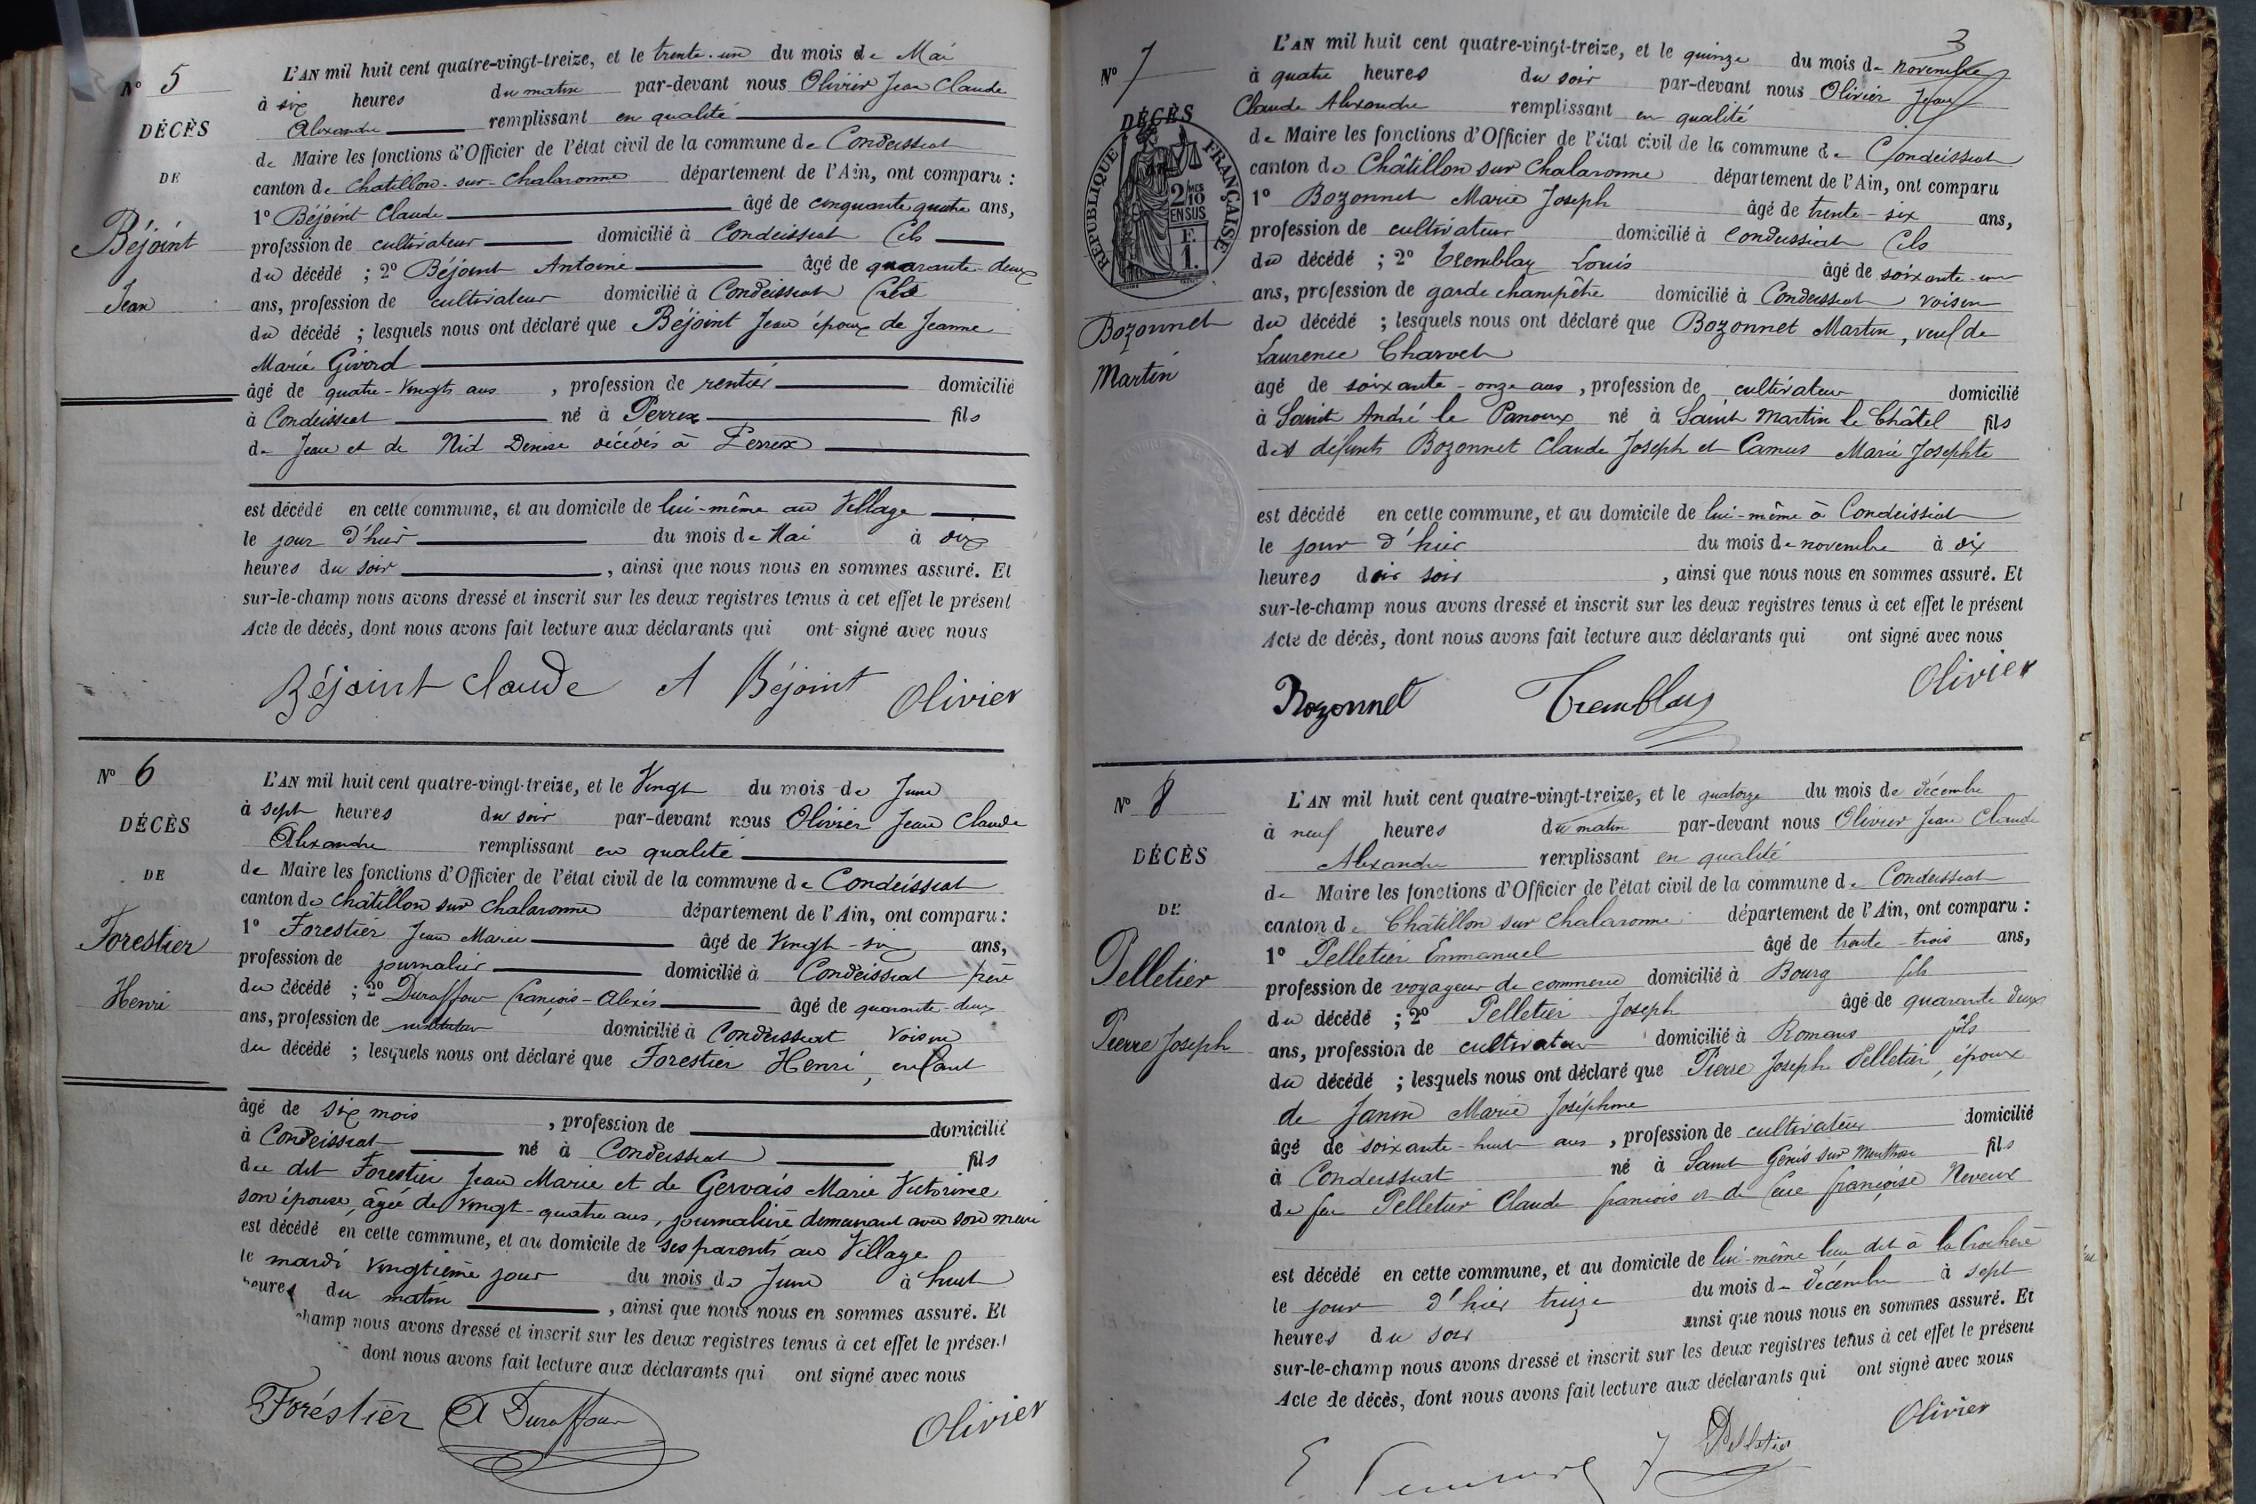 N° 5
DÉCÈS
DE
Béjoint
Jean
L'AN mil huit cent quatre-vingt-treize, et le trente-un du mois de Mai
à six heures du matin par-devant nous Olivier Jean Claude
Alexandre remplissant en qualité
de Maire les fonctions d'Officier de l'état civil de la commune de Condeissiat
canton de Chatillon-sur-Chalaronne département de l'Ain, ont comparu :
1° Béjoint Claude âgé de cinquante quatre ans,
profession de cultivateur domicilié à Condeissiat fils
du décédé ; 2° Béjoint Antoine âgé de quarante-deux
ans, profession de cultivateur domicilié à Condeissiat fils
du décédé ; lesquels nous ont déclaré que Béjoint Jean époux de Jeanne
Marie Givord
âgé de quatre-vingts ans , profession de rentier domicilié
à Condeissiat né à Perrex fils
de Jean et de Nid Denise décédés à Perrex
est décédé en cette commune, et au domicile de lui-même au Village
le jour d'hier du mois de Mai à dix
heures du soir , ainsi que nous nous en sommes assuré. Et
sur-le-champ nous avons dressé et inscrit sur les deux registres tenus à cet effet le présent
Acte de décès, dont nous avons fait lecture aux déclarants qui ont signé avec nous
Béjoint Claude A Béjoint Olivier
N° 6
DÉCÈS
DE
Forestier
Henri
L'AN mil huit cent quatre-vingt-treize, et le Vingt du mois de Juin
à sept heures du soir par-devant nous Olivier Jean Claude
Alexandre remplissant en qualité
de Maire les fonctions d'Officier de l'état civil de la commune de Condeissiat
canton de Châtillon sur Chalaronne département de l'Ain, ont comparu :
1° Forestier Jean Marie âgé de Vingt-six ans,
profession de journalier domicilié à Condeissiat père
du décédé ; 2° Duraffour françois-Alexis âgé de quarante-deux
ans, profession de instituteur domicilié à Condeissiat voisin
du décédé ; lesquels nous ont déclaré que Forestier Henri, enfant
âgé de six mois , profession de domicilié
à Condeissiat né à Condeissiat fils
du dit Forestier Jean Marie et de Gervais Marie Victorine
son épouse, âgée de vingt-quatre ans, journalière demeurant avec son mari
est décédé en cette commune, et au domicile de ses parents au Village
le mardi vingtième jour du mois de Juin à huit
heures du matin , ainsi que nous nous en sommes assuré. Et
champ nous avons dressé et inscrit sur les deux registres tenus à cet effet le présent
dont nous avons fait lecture aux déclarants qui ont signé avec nous
Foréstier A Duraffour Olivier
3
N° 7
DÉCÈS
RÉPUBLIQUE FRANÇAISE
2 MES
10
EN SUS
F.
1.
Bozonnet
Martin
L'AN mil huit cent quatre-vingt-treize, et le quinze du mois de novembre
à quatre heures du soir par-devant nous Olivier Jean
Claude Alexandre remplissant en qualité
de Maire les fonctions d'Officier de l'état civil de la commune de Condeissiat
canton de Châtillon sur Chalaronne département de l'Ain, ont comparu
1° Bozonnet Marie Joseph âgé de trente-six ans,
profession de cultivateur domicilié à Condeissiat fils
du décédé ; 2° Tremblay Louis âgé de soixante-un
ans, profession de garde champêtre domicilié à Condeissiat voisin
du décédé ; lesquels nous ont déclaré que Bozonnet Martin, veuf de
Laurence Charvet
âgé de soixante-onze ans , profession de cultivateur domicilié
à Saint André le Panoux né à Saint Martin le Châtel fils
des défunts Bozonnet Claude Joseph et Camus Marie Josephte
est décédé en cette commune, et au domicile de lui-même à Condeissiat
le jour d'hier du mois de novembre à dix
heures du soir , ainsi que nous nous en sommes assuré. Et
sur-le-champ nous avons dressé et inscrit sur les deux registres tenus à cet effet le présent
Acte de décès, dont nous avons fait lecture aux déclarants qui ont signé avec nous
Bozonnet Tremblay Olivier
N° 8
DÉCÈS
DE
Pelletier
Pierre Joseph
L'AN mil huit cent quatre-vingt-treize, et le quatorze du mois de décembre
à neuf heures du matin par-devant nous Olivier Jean Claude
Alexandre remplissant en qualité
de Maire les fonctions d'Officier de l'état civil de la commune de Condeissiat
canton de Châtillon sur Chalaronne département de l'Ain, ont comparu :
1° Pelletier Emmanuel âgé de trente-trois ans,
profession de voyageur de commerce domicilié à Bourg fils
du décédé ; 2° Pelletier Joseph âgé de quarante deux
ans, profession de cultivateur domicilié à Romans fils
du décédé ; lesquels nous ont déclaré que Pierre Joseph Pelletier, époux
de Janin Marie Joséphine
âgé de soixante-huit ans , profession de cultivateur domicilié
à Condeissiat né à Saint Genis sur Menthon fils
de feu Pelletier Claude françois et de feue françoise Neveux
est décédé en cette commune, et au domicile de lui-même lieu dit à la
le jour d'hier treize du mois de décembre à sept
heures du soir ainsi que nous nous en sommes assuré. Et
sur-le-champ nous avons dressé et inscrit sur les deux registres tenus à cet effet le présent
Acte de décès, dont nous avons fait lecture aux déclarants qui ont signé avec nous
E J Pelletier Olivier